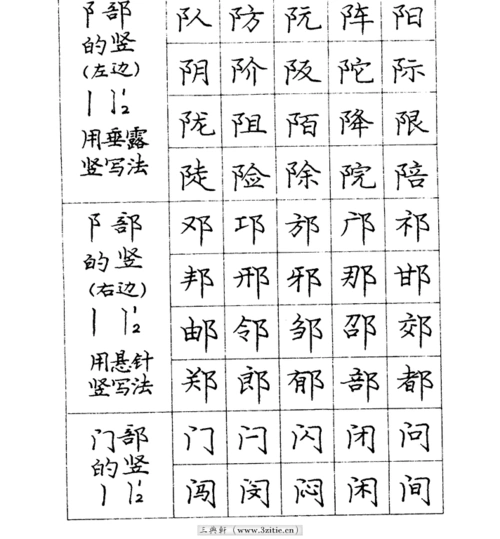 阝部
的竖
(左边)
用垂露
竖写法
队 防 阮 阵 阳
阴 阶 阪 陀 际
陇 阻 陌 降 限
陡 险 除 院 陪
阝部
的竖
(右边)
用悬针
竖写法
邓 邛 邡 邝 祁
邦 邢 邪 那 邯
邮 邻 邹 邵 郊
郑 郎 郁 部 都
门部
的竖
门 闩 闪 闭 问
闯 闵 闷 闲 间
(www.3zitie.cn)